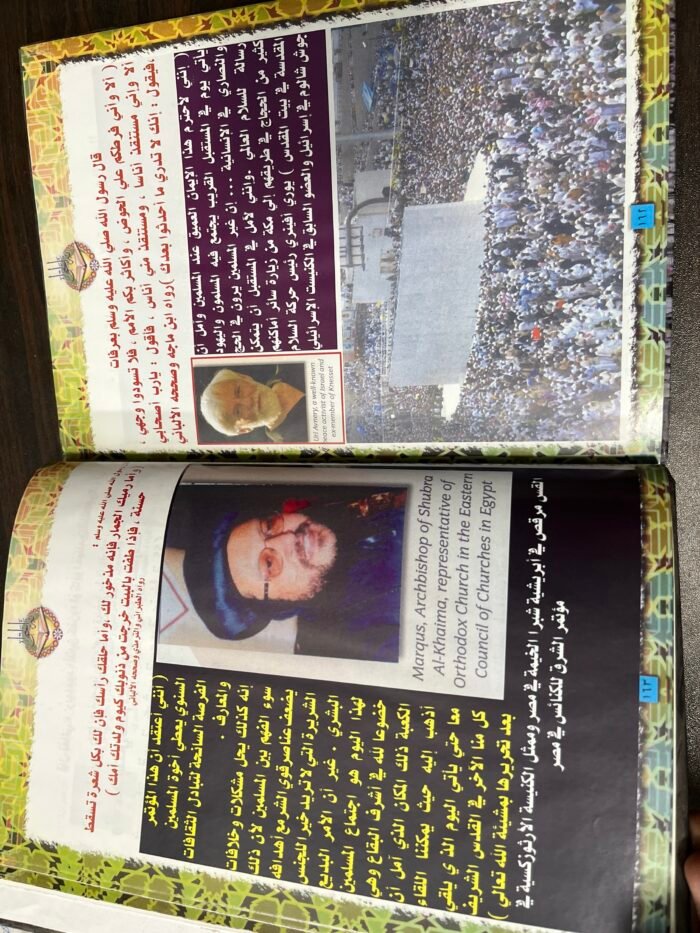 قال رسول الله صلى الله عليه وسلم بعرفات
( ألا وأني فرطكم على الحوض ، وأكاثر بكم الأمم ، فلا تسودوا وجهي ،
ألا وأني مستنقذ أناسا ، ومستنقذ مني أناس ، فأقول : يارب أصحابي
،فيقول : إنك لا تدري ما أحدثوا بعدك ) رواه ابن ماجه وصححه الألباني
( إنني لأحترم هذا الايمان العميق عند المسلمين وآمل أن
يأتي يوم في المستقبل القريب يجتمع فيه المسلمون واليهود
والنصارى في الانسانية .... إن غير المسلمين يرون في الحج
رسالة للسلام العالمي .وأنني لأمل في المستقبل أن يتمكن
كثير من الحجاج في طريقهم إلى مكة من زيارة سائر أماكنهم
المقدسة في بيت المقدس ) يوري أفنيري رئيس حركة السلام
جوش شالوم في إسرائيل والعضو السابق في الكنيست الإسرائيلي
Uri Avnery, a well-known
peace activist of Israel and
ex-member of Knesset
١٦٢
رسول الله صلى الله عليه وسلم :
وأما رميك الجمار فإنه مذخور لك .وأما حلقك رأسك فإن لك بكل شعرة تسقط
حسنة ، فإذا طفت بالبيت خرجت من ذنوبك كيوم ولدتك أمك )
رواه الطبراني والترمذي وصححه الألباني
( أنني أعتقد أن هذا المؤتمر
السنوي يعطي أخوة المسلمين
الفرصة السانحة لتبادل الثقافات
والمعارف .
إنه كذالك يحل مشكلات وخلافات
سوء الفهم بين المسلمين لأن ذلك
يضعف عناصر قوي الشر مع أهدافه
الشريرة التي لا تريد خير للجنس
البشري . غير أن الأمر البديع
لهذا اليوم هو اجتماع المسلمين
خضوعا لله في أشرف البقاع وهي
الكعبة ذلك المكان الذي آمل أن
أذهب إليه حيث يمكننا اللقاء
معا حتى يأتي اليوم الذي يلقي
كل منا الآخر في القدس الشريف
بعد تحريرها بمشيئة الله تعالى )
Marqus, Archbishop of Shubra
Al-Khaima, representative of
Orthodox Church in the Eastern
Council of Churches in Egypt
القس مرقص في أبريشية شبرا الخيمة في مصر وممثل الكنيسة الارثوزكسية في
مؤتمر الشرق للكنائس في مصر
١٦٣